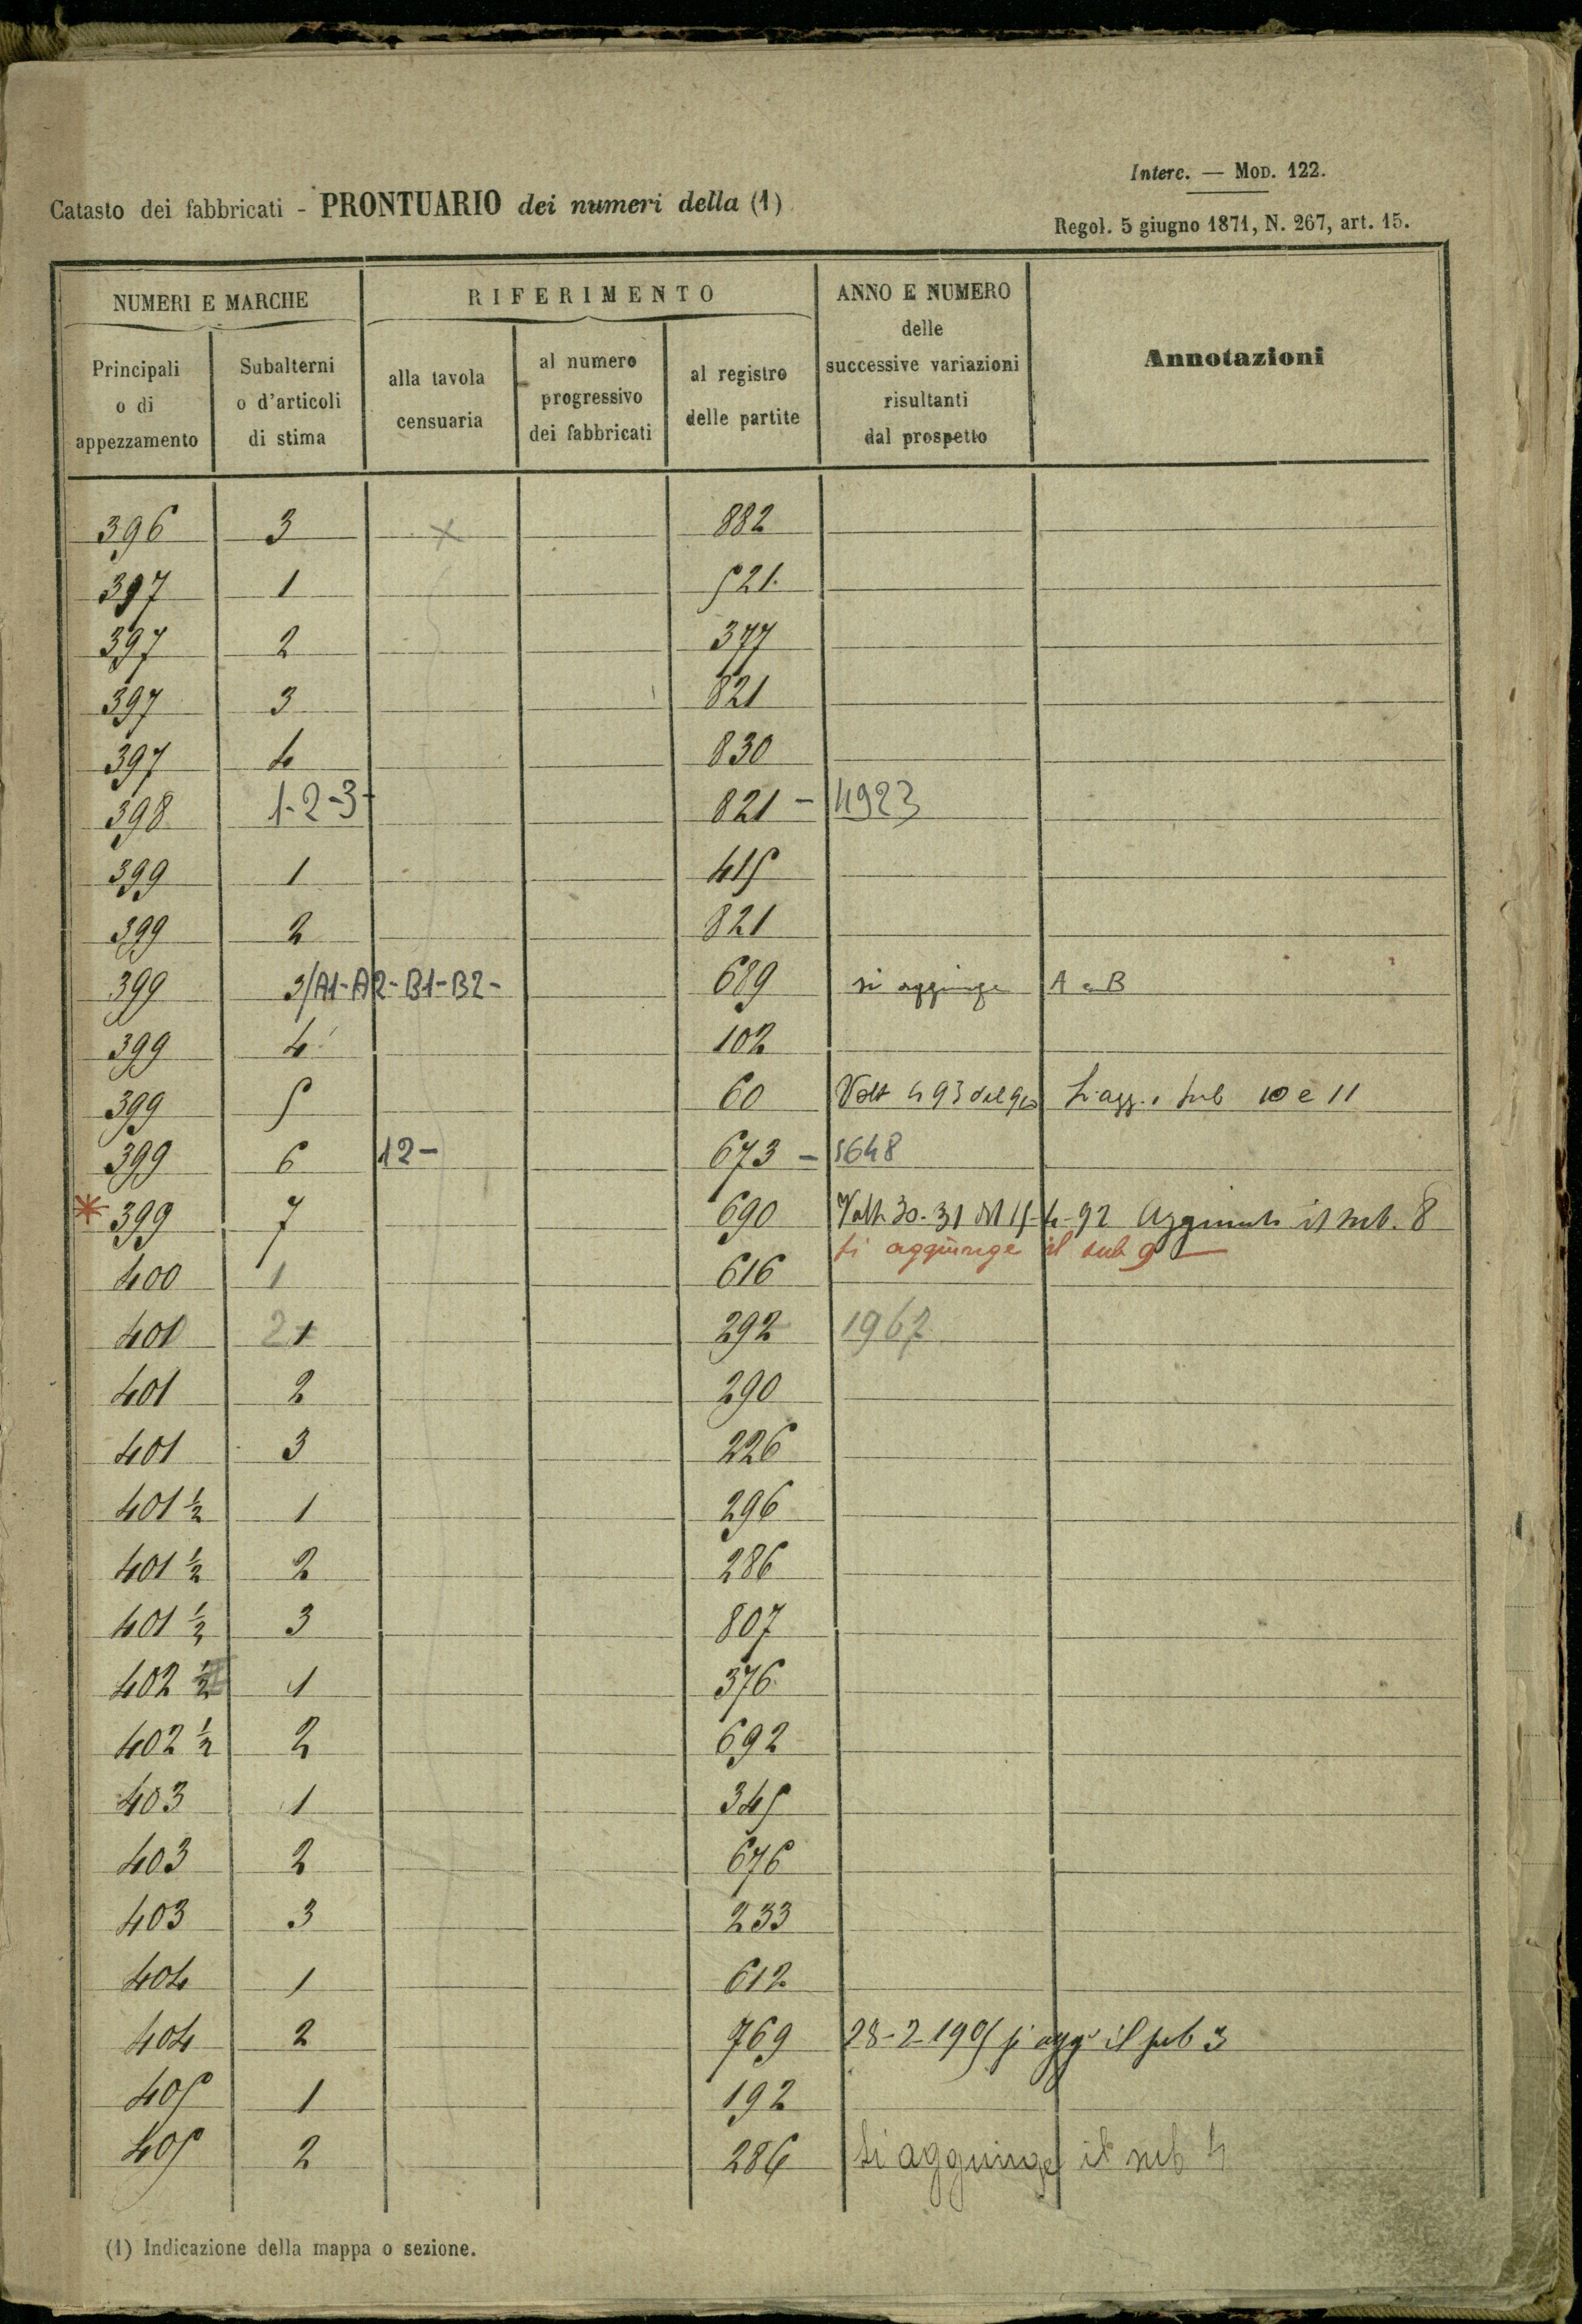 Interc. — Mod. 122.
Catasto dei fabbricati - PRONTUARIO dei numeri della (1)
Regol. 5 giugno 1871, N. 267, art. 15.
NUMERI E MARCHE
RIFERIMENTO
ANNO E NUMERO
delle
successive variazioni
risultanti
dal prospetto
Annotazioni
Principali
o di
appezzamento
Subalterni
o d'articoli
di stima
alla tavola
censuaria
al numero
progressivo
dei fabbricati
al registro
delle partite
396 3 x 882
397 1 521
397 2 377
397 3 821
397 4 830
398 1-2-3- 821 - 4923
399 1 415
399 2 821
399 3/A1-A2-B1-B2- 689 si aggiunge A e B
399 4 102
399 5 60 493 sub 10 e 11
399 6 12- 673 - 5648
* 399 7 690 30-31 15-4-92 il sub. 8
si aggiunge il sub 9 —
400 1 616
401 2 1 292 1967
401 2 290
401 3 226
401 ½ 1 296
401 ½ 2 286
401 ½ 3 807
402 ½ 1 376
402 ½ 2 692
403 1 345
403 2 676
403 3 233
404 1 612
404 2 769 28-2-1905 si agge il sub 3
405 1 192
405 2 286 si aggiunge il sub 4
(1) Indicazione della mappa o sezione.